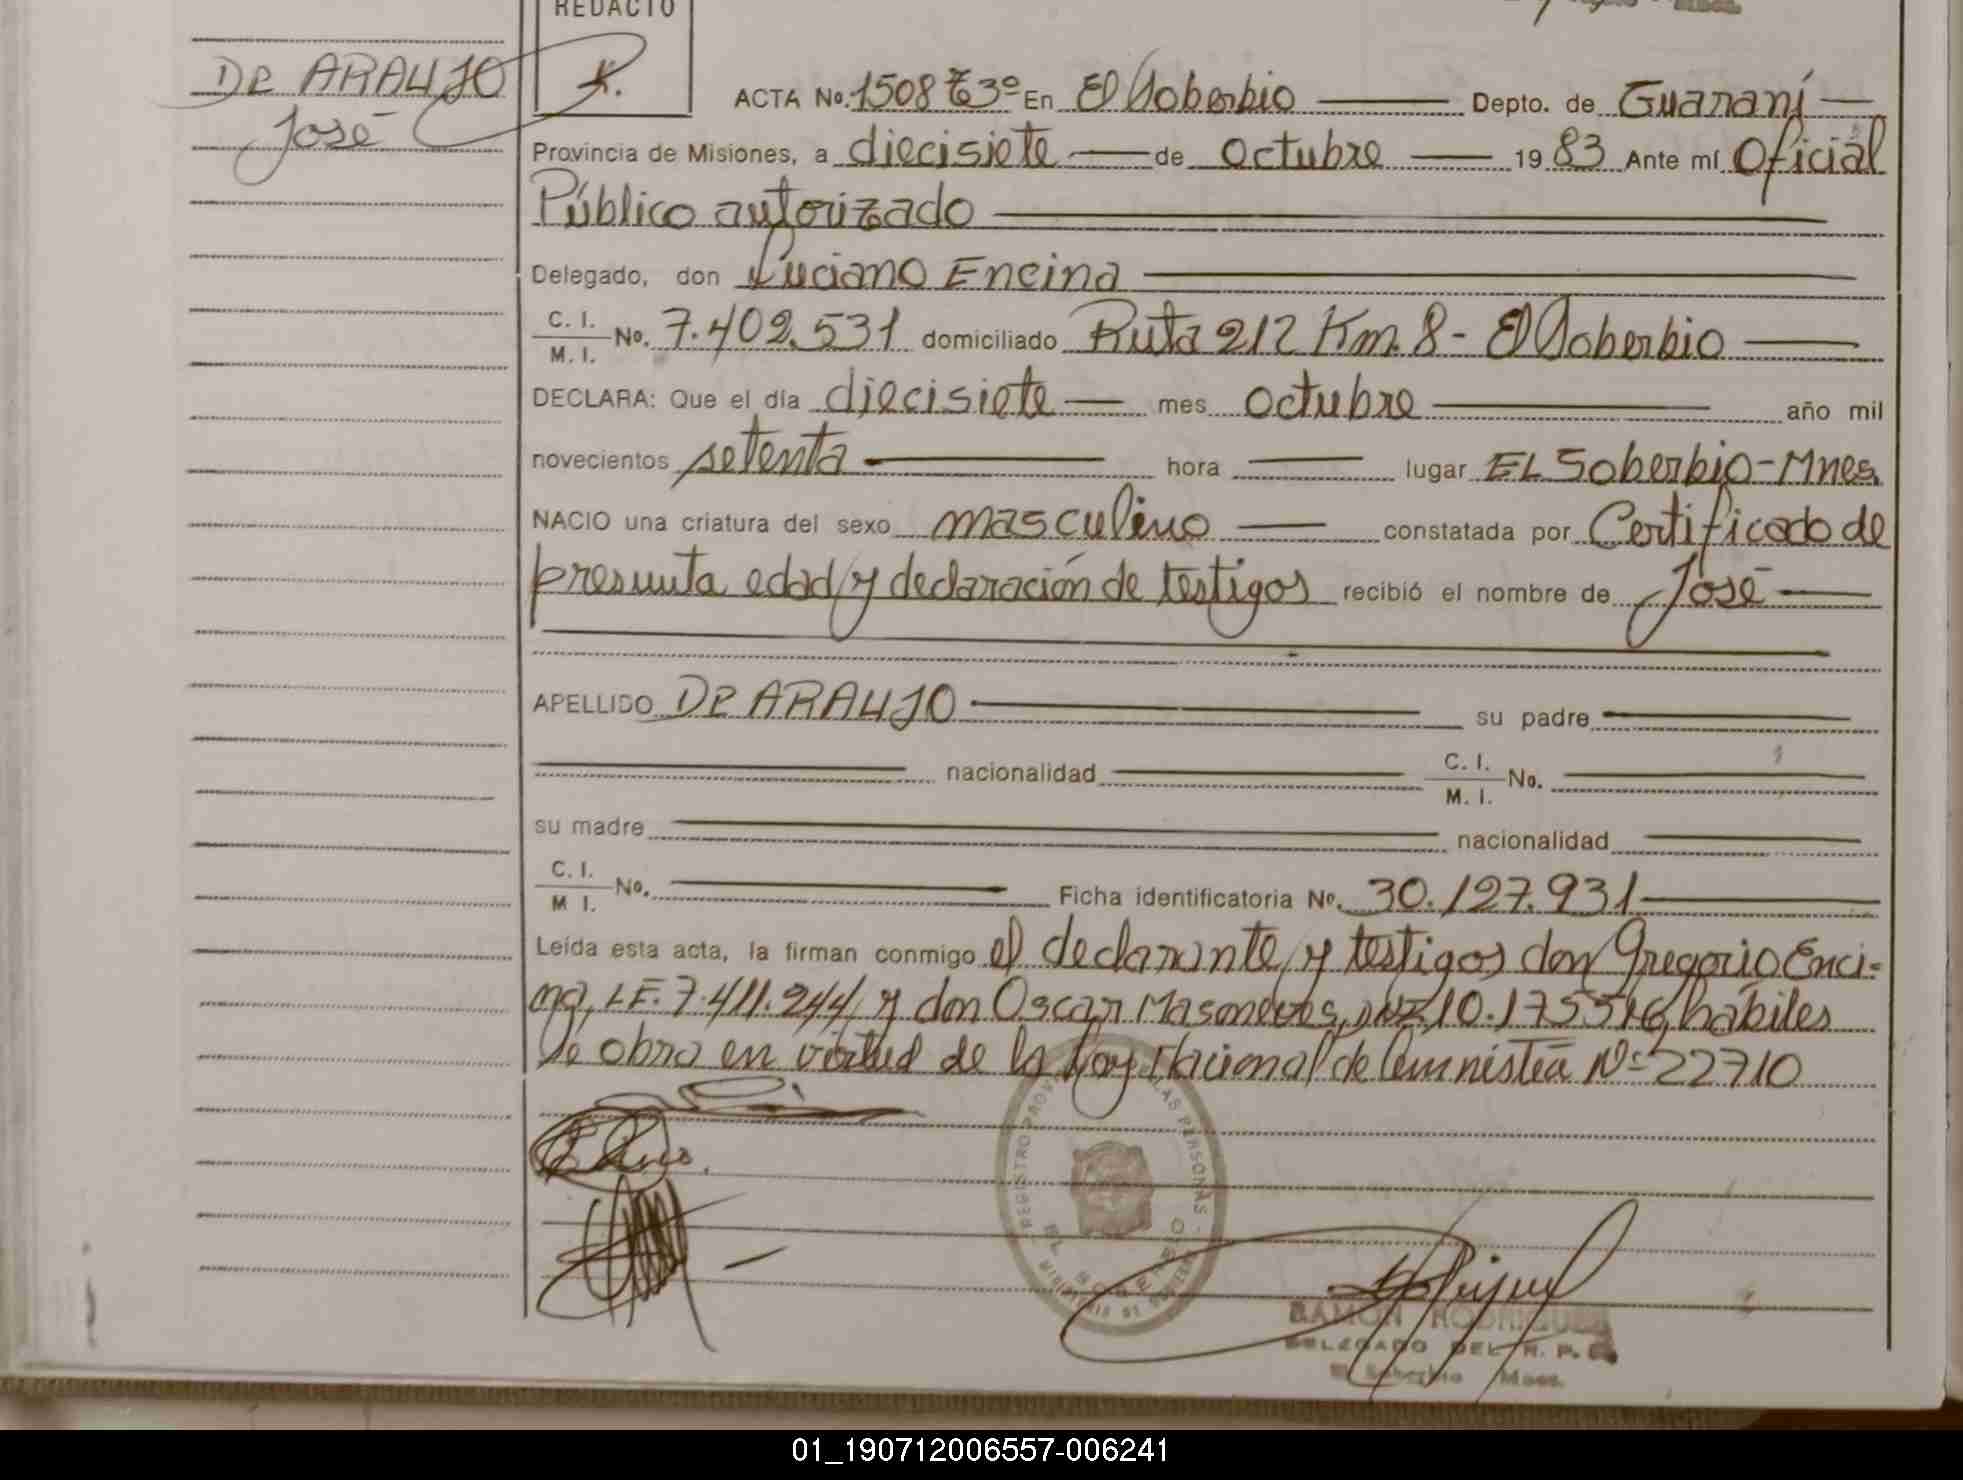 REDACTO
DE ARAUJO
José
ACTA No. 1508 Tº 3º En El Soberbio Depto. de Guaraní
Provincia de Misiones, a diecisiete de Octubre 19 83 Ante mí Oficial
Público autorizado
Delegado, don Luciano Encina
C. I.
M. I. No. 7.402.531 domiciliado Ruta 212 Km. 8 - El Soberbio
DECLARA: Que el día diecisiete mes octubre año mil
novecientos setenta hora lugar EL Soberbio-Mnes.
NACIO una criatura del sexo masculino constatada por Certificado de
presunta edad y declaración de testigos recibió el nombre de José
APELLIDO DE ARAUJO su padre
nacionalidad C. I.
M. I. No.
su madre nacionalidad
C. I.
M I. No. Ficha identificatoria No. 30.127.931
Leída esta acta, la firman conmigo el declarante y testigos don Gregorio Enci-
na, L.E. 7.411.244 y don Oscar 10.175516, hábiles
Se obro en virtud de la Ley Nacional de Amnistía Nº 22710
REGISTRO PROV LAS PERSONAS
EL SOBERBIO
RAMON RODRIGUEZ
DELEGADO DEL R. P.
El Soberbio Mnes.
01_190712006557-006241